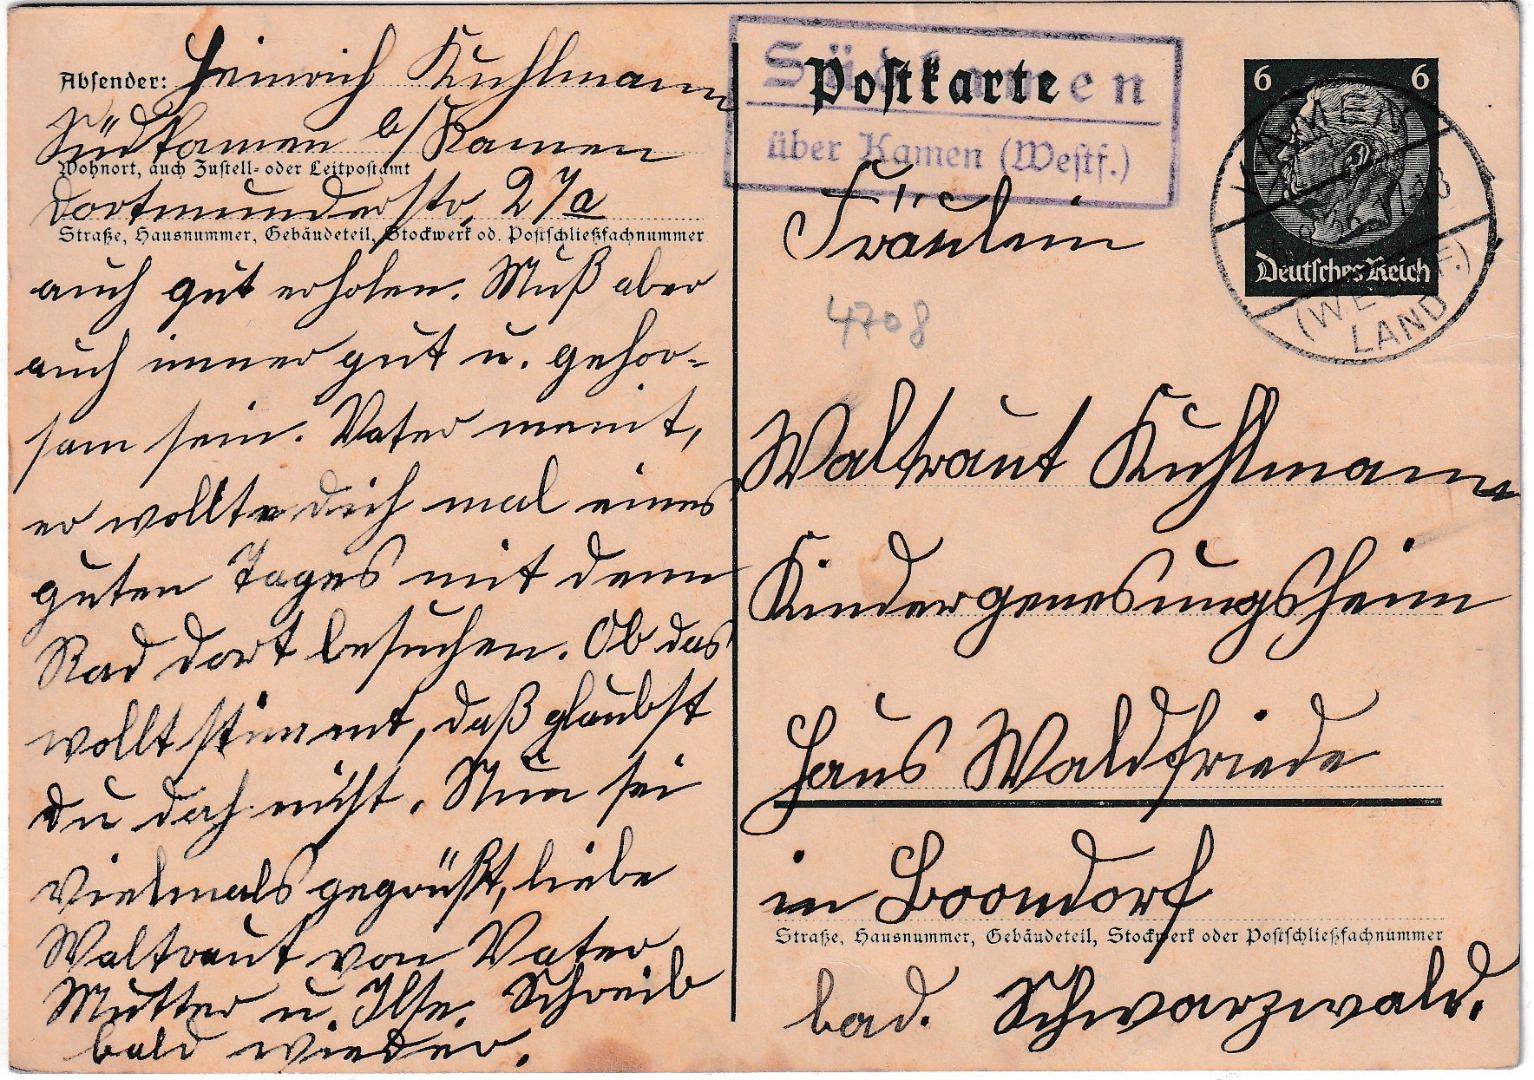 Absender: Heinrich Kuhlmann
Südkamen b/Kamen
Wohnort, auch Zustell- oder Leitpostamt
Dortmunderstr. 27a
Straße, Hausnummer, Gebäudeteil, Stockwerk od. Postschließfachnummer
auch gut erholen. Muß aber
auch immer gut u. gehor-
sam sein. Vater meint,
er wollte dich mal eines
guten Tages mit dem
Rad dort besuchen. Ob das
wollt stimmt, daß glaubst
du doch nicht. Nun sei
vielmals gegrüßt, liebe
Waltraut von Vater
Mutter u. Ilse. Schreib
bald wieder.
Postkarte
Südkamen
über Kamen (Westf.)
6 6
Deutsches Reich
KAMEN
(WESTF.)
LAND
Fräulein
4708
Waltraut Kuhlmann
Kindergenesungsheim
Haus Waldfriede
in Boondorf
Straße, Hausnummer, Gebäudeteil, Stockwerk oder Postschließfachnummer
bad. Schwarzwald.